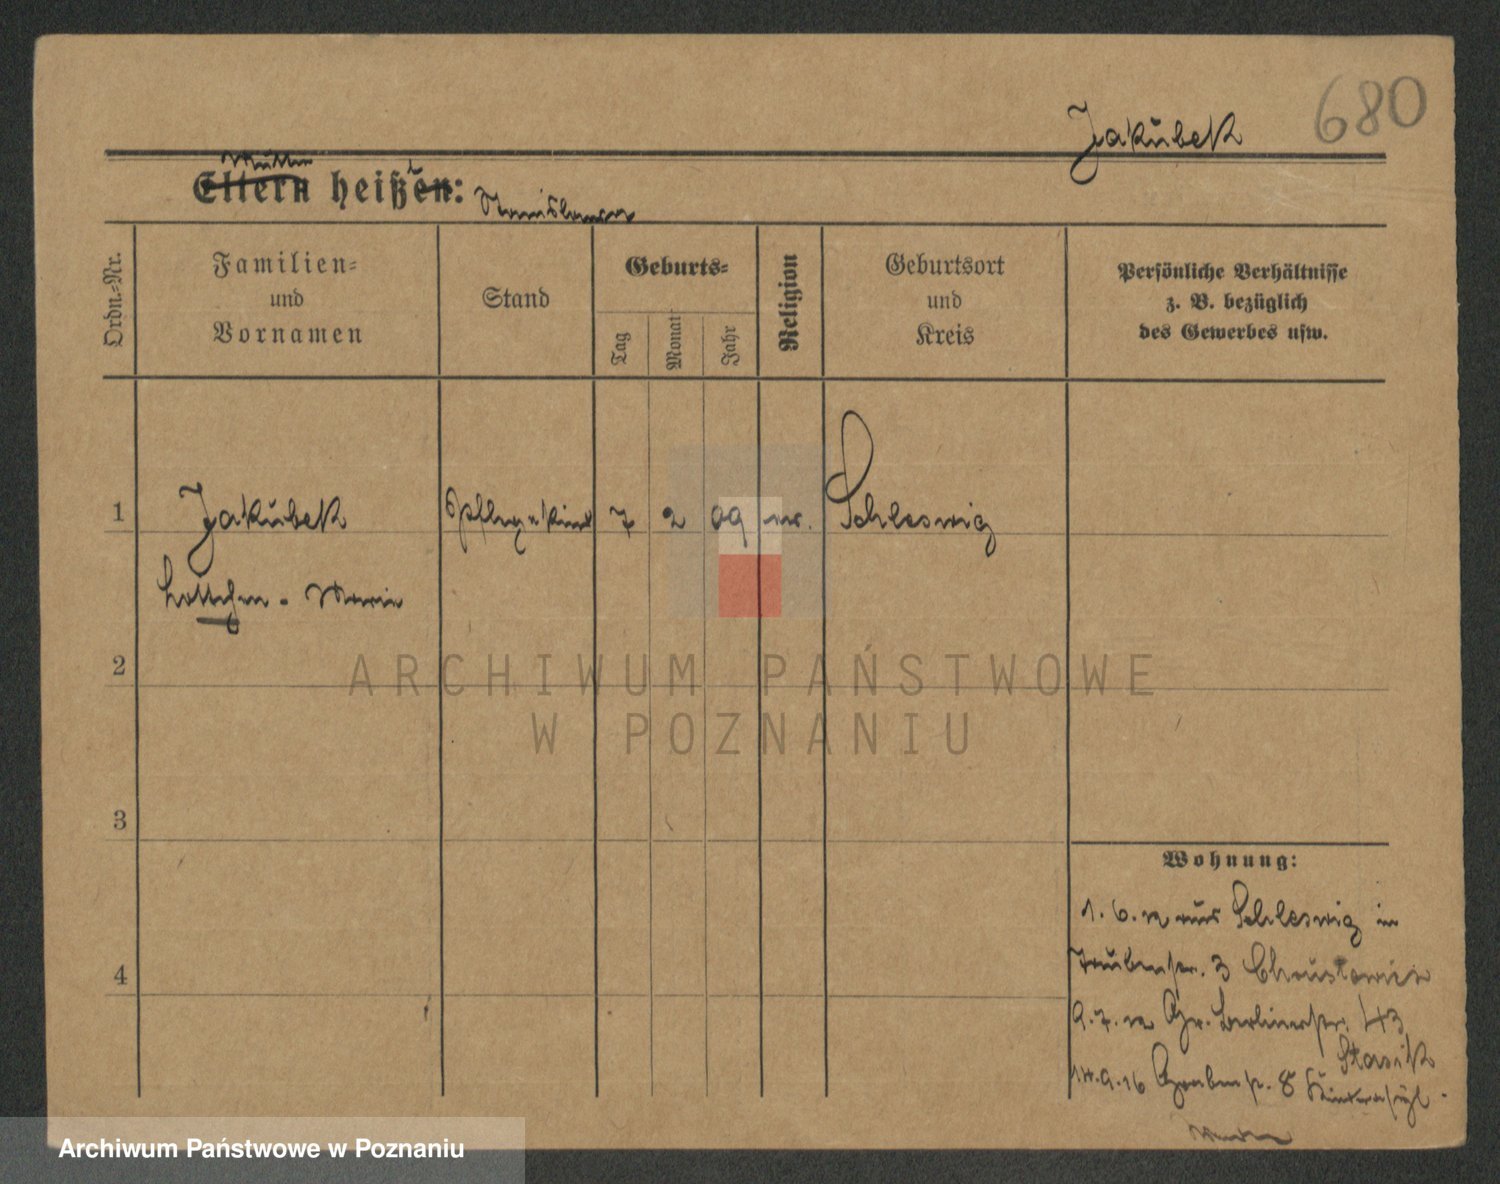 680
Jakubek
Mutter
Eltern heißen:
Stanislawa
Ordn.-Nr.
Familien-
und
Vornamen
Stand
Geburts-
Tag
Monat
Jahr
Religion
Geburtsort
und
Kreis
Persönliche Verhältnisse
z. B. bezüglich
des Gewerbes usw.
1
Jakubek
Pflegekind
7
2
09
Schleswig
Lottchen - Maria
2
ARCHIWUM PAŃSTWOWE
W POZNANIU
3
Wohnung:
1. 6. 12 aus Schleswig in
4
3
9. 7. 12 Gr. Berlinerstr. 43
Stasik
14.9.16 Grabenstr. 8 Kinderasyl.
Archiwum Państwowe w Poznaniu